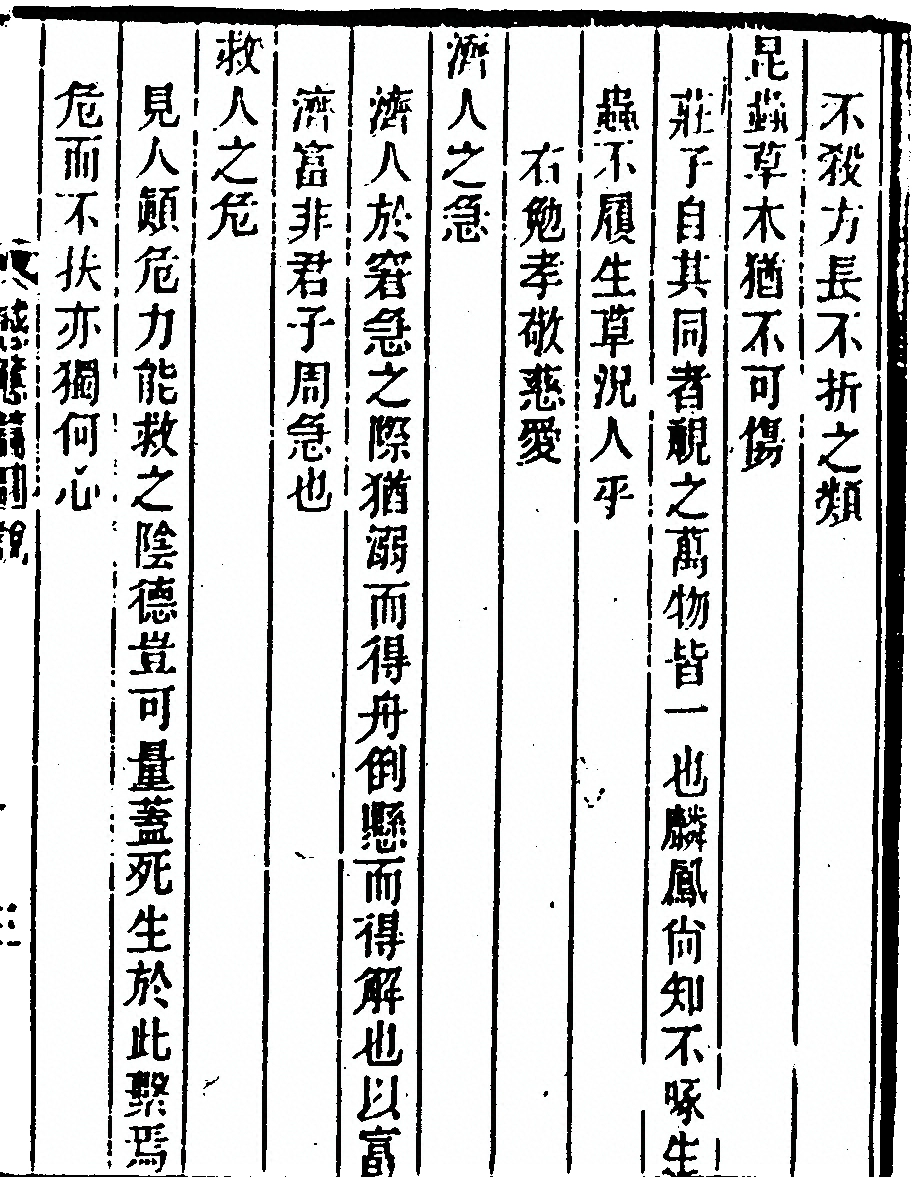 不殺方長不折之類
昆蟲草木猶不可傷
莊子自其同者視之萬物皆一也麟鳳尚知不啄生
蟲不履生草況人乎
右勉孝敬慈愛
濟人之急
濟人於窘急之際猶溺而得舟倒懸而得解也以富
濟富非君子周急也
救人之危
見人顛危力能救之陰德豈可量蓋死生於此繫焉
危而不扶亦獨何心
感應篇圖說